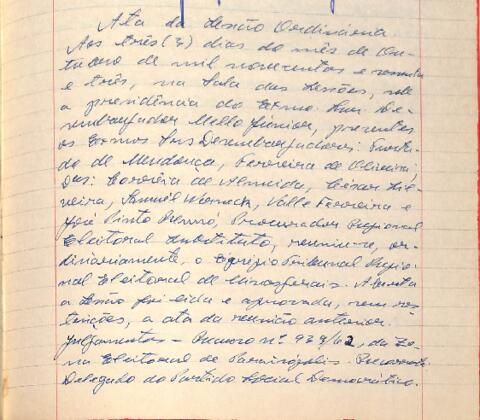 Ata da sessão Ordinária.
Aos três (3) dias do mês de Ou-
tubro de mil novecentos e sessenta
e três, na Sala das Sessões, sob
a presidência do Exmo. Snr. De-
sembargador Mello Júnior, presentes
os Exmos Srs Desembargadores: Furta-
do de Mendonça, Ferreira de Oliveira,
Drs: Corrêia de Almeida, César Sil-
veira, Samuel Werneck, Valle Ferreira e
José Pinto Renó, Procurador Regional
Eleitoral Substituto, reuniu-se, or-
dinariamente, o Egrégio Tribunal Regio-
nal Eleitoral de Minas Gerais. Aberta
a sessão foi lida e aprovada, sem res-
trições, a ata da reunião anterior.
Julgamentos - Recurso nº 939/62, da Zo-
na Eleitoral de Parnirópolis. Recorrente:
Delegado do Partido Social Democrático.